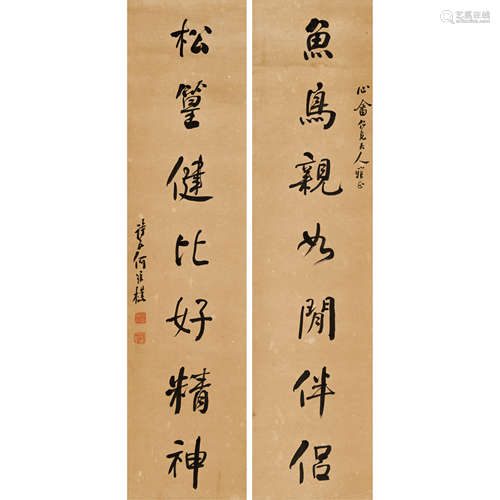 心畬仁兄大人雅正
魚鳥親如閒伴侶
松篁健比好精神
何維樸